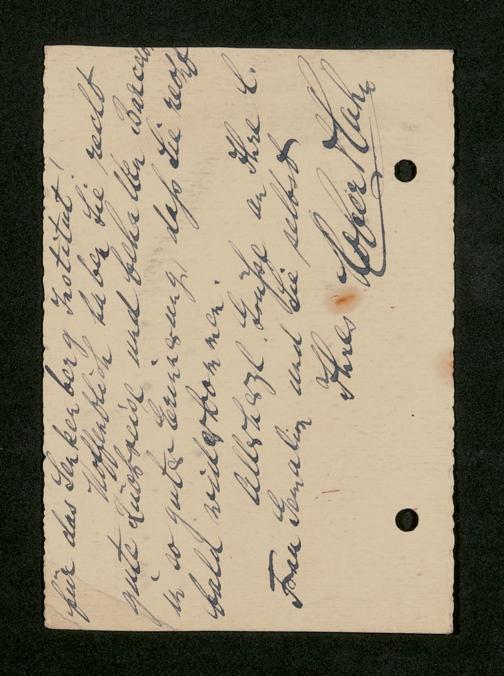 für das Senkenberg Institut!
Hoffentlich haben Sie recht
gute Rückreise und behalten Barcel
in so guter Erinnerung, daß Sie recht
bald wiederkommen.
Allerherzl. Grüße an Ihre l.
Frau Gemahlin und Sie selbst
Ihres